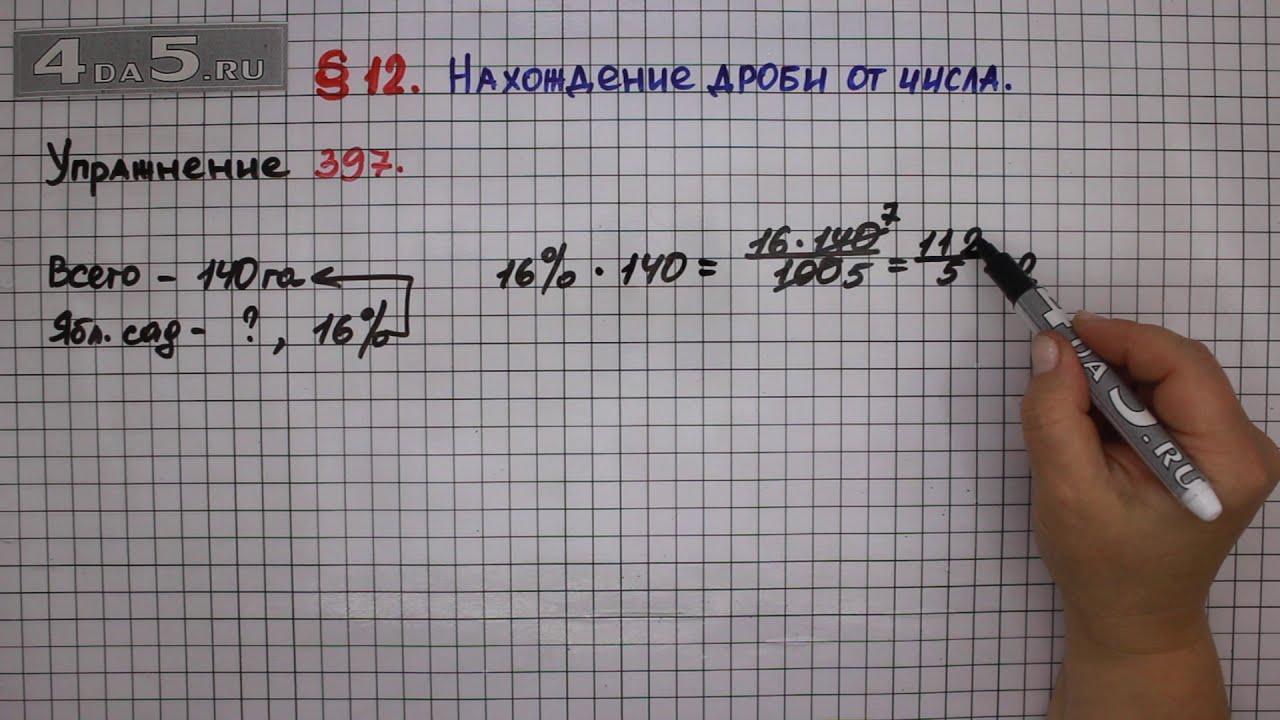 4DA5.RU
§ 12. Нахождение дроби от числа.
Упражнение 397.
16% · 140 = 16 · 140 7 / 100 5 = 112 / 5
Всего - 140 га
Ябл. сад - ? , 16%
DA5.RU